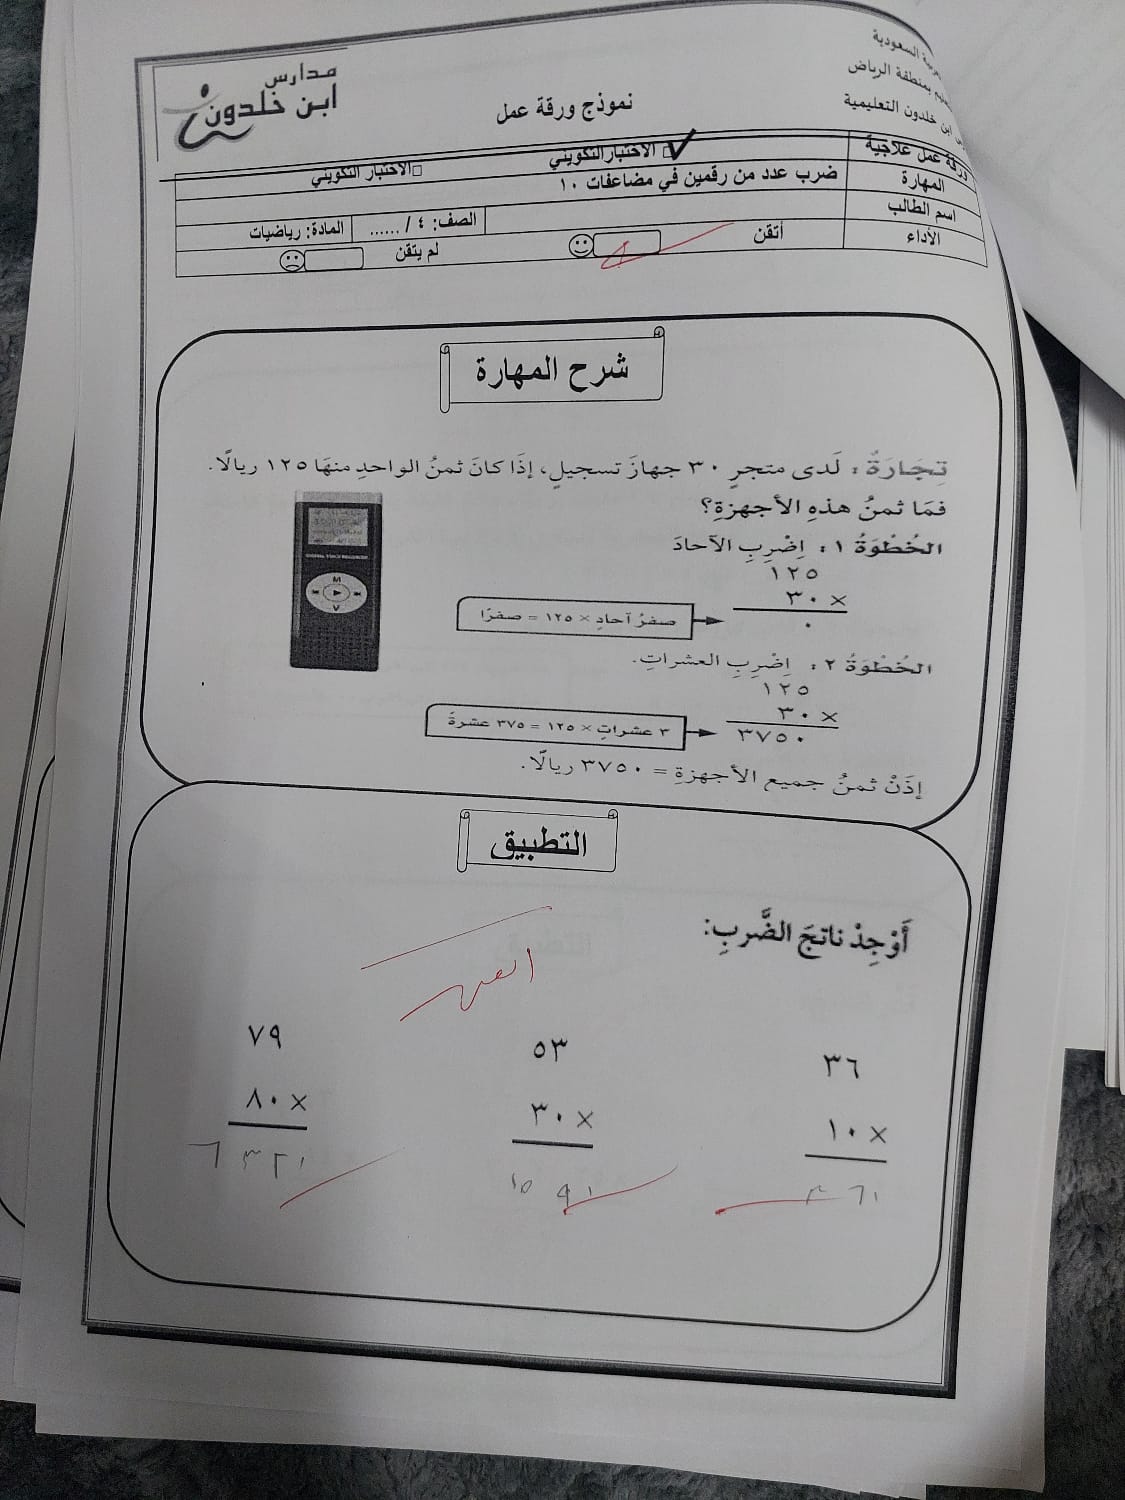 العربية السعودية
بمنطقة الرياض
ابن خلدون التعليمية
مدارس
ابن خلدون
نموذج ورقة عمل
ورقة عمل علاجية
✓ الاختبار التكويني □ الاختبار التكويني
المهارة ضرب عدد من رقمين في مضاعفات ١٠
اسم الطالب
الصف: ٤ / ...... المادة: رياضيات
الأداء أتقن لم يتقن
شرح المهارة
تِجَارَةٌ : لَدى متجرٍ ٣٠ جهازَ تسجيلٍ، إذَا كانَ ثمنُ الواحدِ منهَا ١٢٥ ريالًا.
فمَا ثمنُ هذهِ الأجهزةِ؟
الخُطْوَةُ ١ : اِضْرِبِ الآحادَ
١٢٥
٣٠ ×
صفرُ آحادِ × ١٢٥ = صفرًا
٠
الخُطْوَةُ ٢ : اِضْرِبِ العشراتِ.
١٢٥
٣٠ ×
٣ عشراتٍ × ١٢٥ = ٣٧٥ عشرةً
٣٧٥٠
إذَنْ ثمنُ جميعِ الأجهزةِ = ٣٧٥٠ ريالًا.
التطبيق
أَوْجِدْ ناتجَ الضَّربِ:
٣٦ ٥٣ ٧٩
١٠ × ٣٠ × ٨٠ ×
٣٦٠ ١٥٩٠ ٦٣٢٠